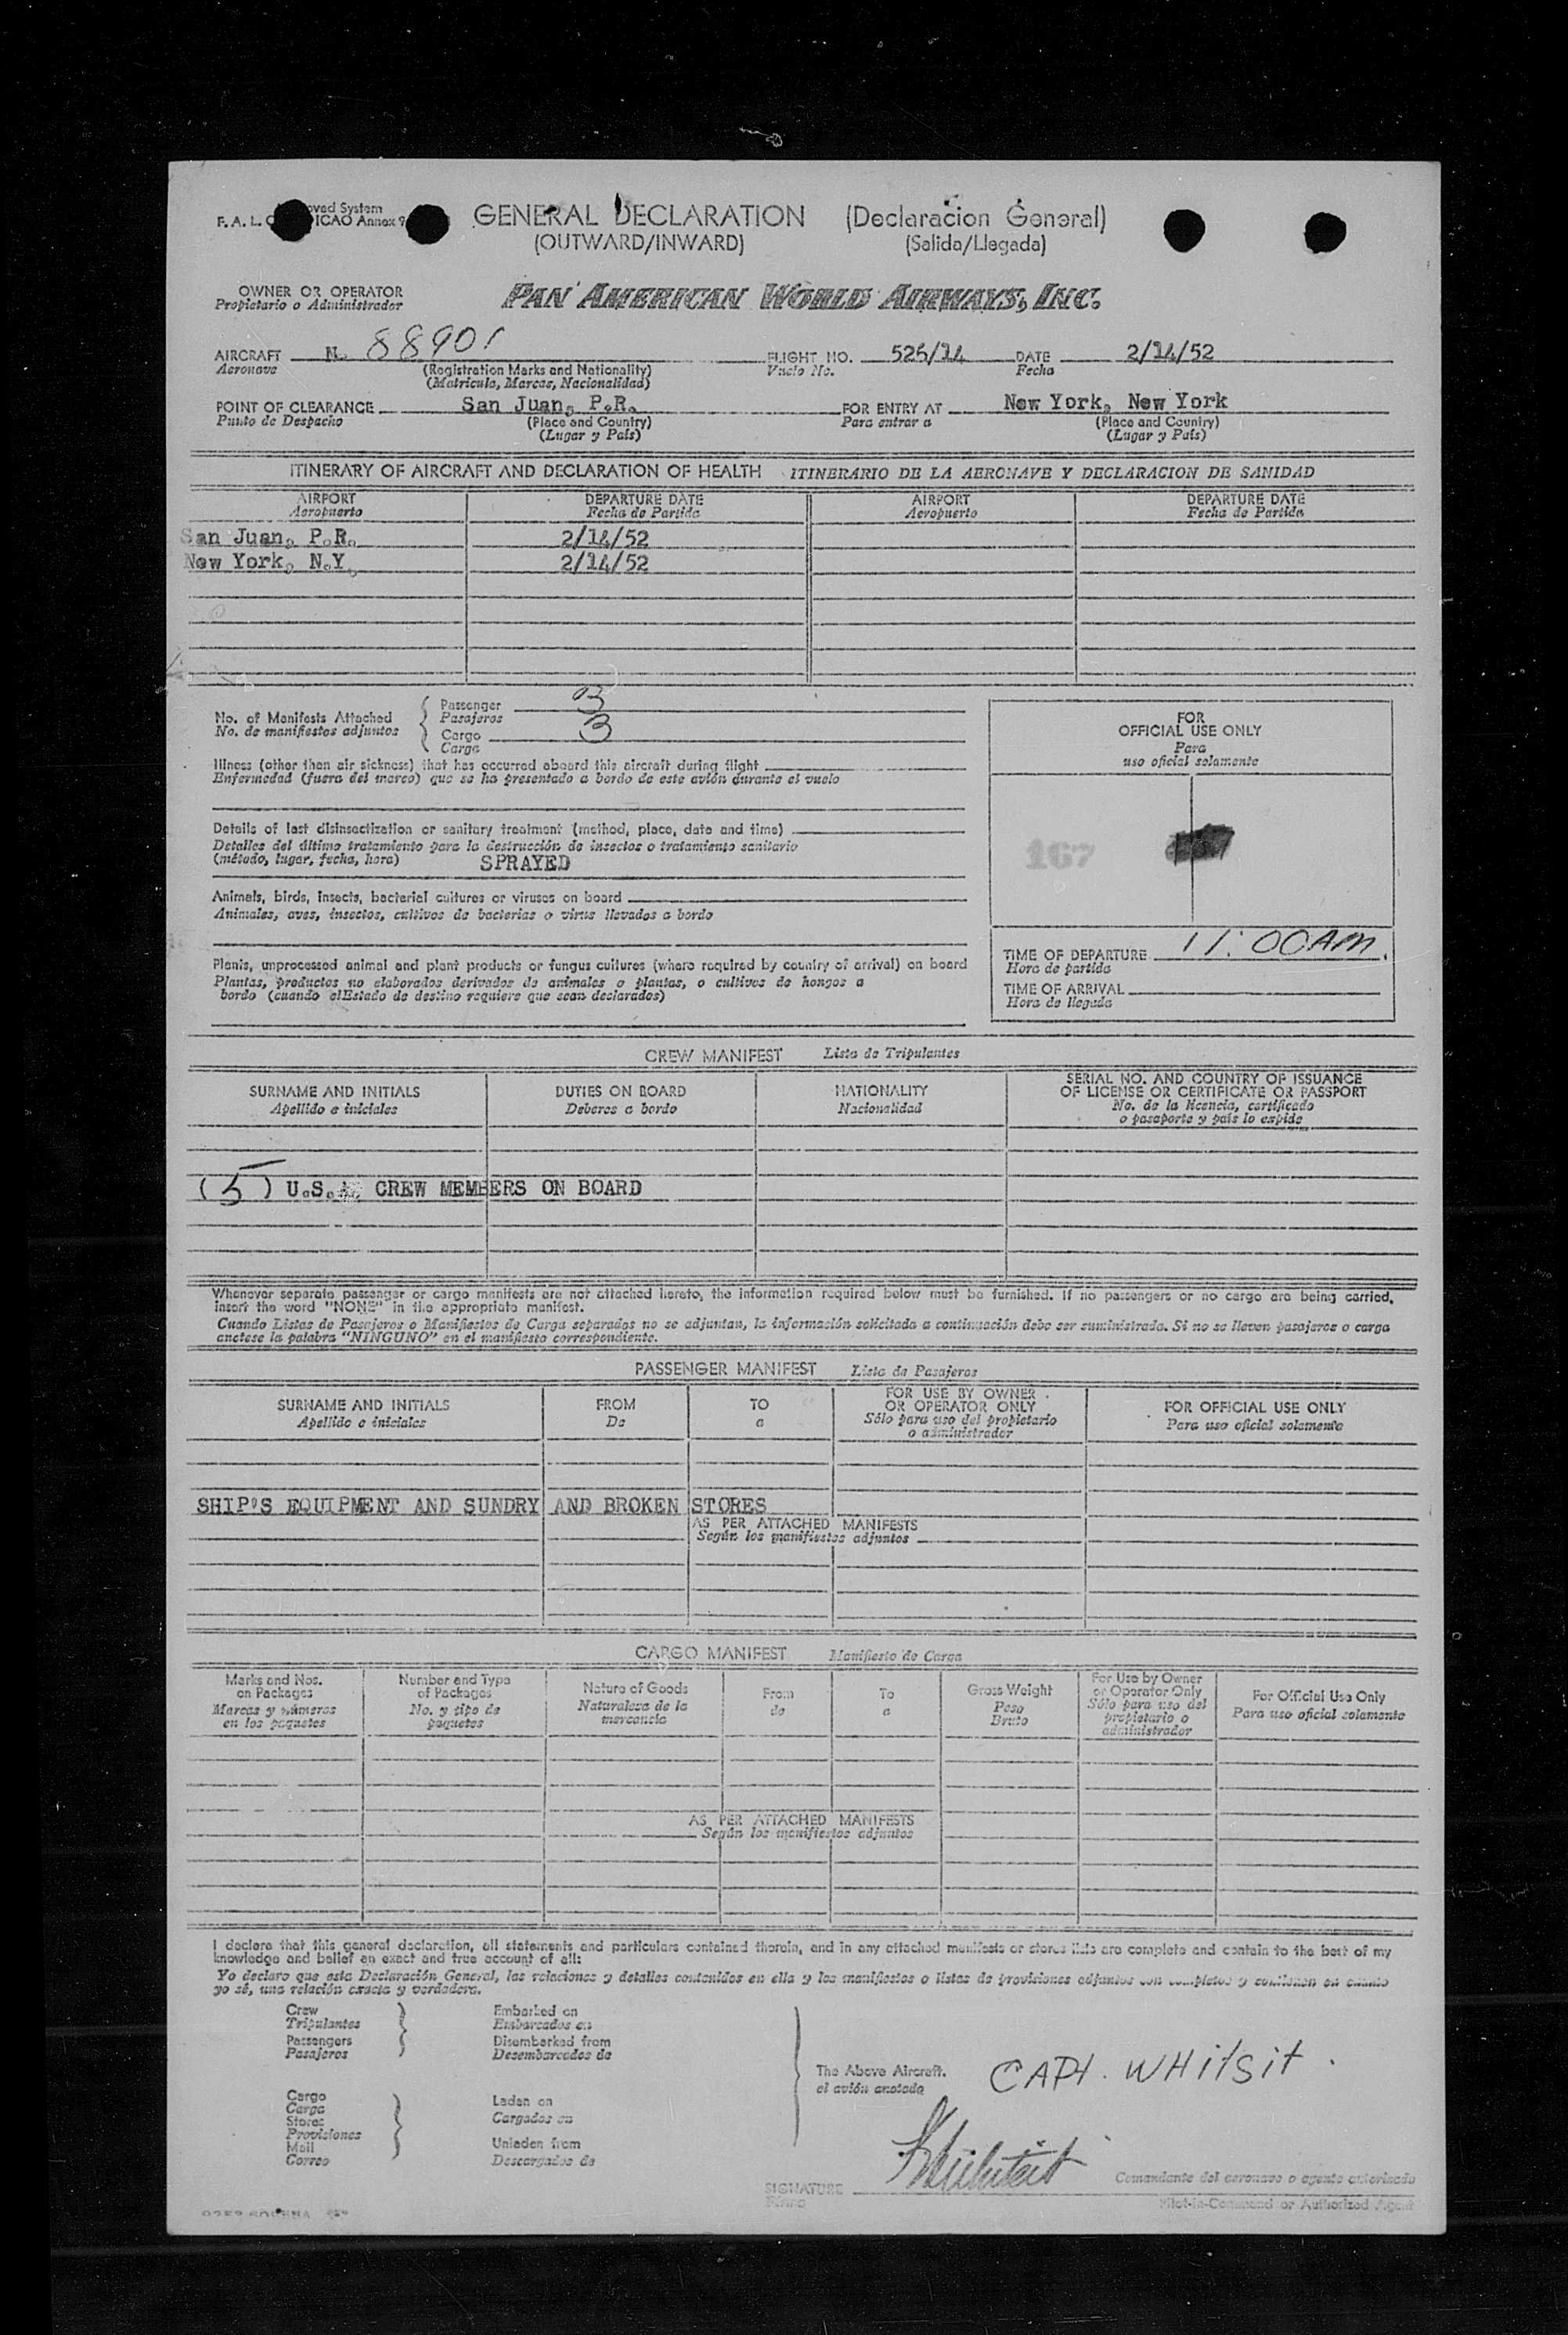 F. A. L. ICAO Annex 9
System
GENERAL DECLARATION (Declaracion General)
(OUTWARD/INWARD) (Salida/Llegada)
OWNER OR OPERATOR
Propietario o Administrador
PAN AMERICAN WORLD AIRWAYS, INC.
AIRCRAFT N 88901 FLIGHT NO. DATE 2/14/52
Aeronave (Registration Marks and Nationality) Vuelo No. Fecha
(Matricula, Marcas, Nacionalidad)
POINT OF CLEARANCE San Juan, P.R. FOR ENTRY AT New York, New York
Punto de Despacho (Place and Country) Para entrar a (Place and Country)
(Lugar y País) (Lugar y País)
ITINERARY OF AIRCRAFT AND DECLARATION OF HEALTH ITINERARIO DE LA AERONAVE Y DECLARACION DE SANIDAD
AIRPORT DEPARTURE DATE AIRPORT DEPARTURE DATE
Aeropuerto Fecha de Partida Aeropuerto Fecha de Partida
San Juan, P.R. 2/14/52
New York, N.Y. 2/14/52
No. of Manifests Attached
No. de manifiestos adjuntos
Passenger 3
Pasajeros
Cargo 3
Carga
Illness (other than air sickness) that has occurred aboard this aircraft during flight
Enfermedad (fuera del mareo) que se ha presentado a bordo de este avión durante el vuelo
Details of last disinsectization or sanitary treatment (method, place, date and time)
Detalles del último tratamiento para la destrucción de insectos o tratamiento sanitario
(método, lugar, fecha, hora) SPRAYED
Animals, birds, insects, bacterial cultures or viruses on board
Animales, aves, insectos, cultivos de bacterias o virus llevados a bordo
Plants, unprocessed animal and plant products or fungus cultures (where required by country of arrival) on board
Plantas, productos no elaborados derivados de animales o plantas, o cultivos de hongos a
bordo (cuando elEstado de destino requiere que sean declarados)
FOR
OFFICIAL USE ONLY
Para
uso oficial solamente
167
TIME OF DEPARTURE 11:00AM.
Hora de partida
TIME OF ARRIVAL
Hora de llegada
CREW MANIFEST Lista de Tripulantes
SURNAME AND INITIALS DUTIES ON BOARD NATIONALITY SERIAL NO. AND COUNTRY OF ISSUANCE
OF LICENSE OR CERTIFICATE OR PASSPORT
Apellido e iniciales Deberes a bordo Nacionalidad No. de la licencia, certificado
o pasaporte y país lo expide
(5) U.S. CREW MEMBERS ON BOARD
Whenever separate passenger or cargo manifests are not attached hereto, the information required below must be furnished. If no passengers or no cargo are being carried,
insert the word "NONE" in the appropriate manifest.
Cuando Listas de Pasajeros o Manifiestos de Carga separados no se adjuntan, la información solicitada a continuación debe ser suministrada. Si no se llevan pasajeros o carga
anótese la palabra "NINGUNO" en el manifiesto correspondiente.
PASSENGER MANIFEST Lista de Pasajeros
SURNAME AND INITIALS FROM TO FOR USE BY OWNER FOR OFFICIAL USE ONLY
OR OPERATOR ONLY
Apellido e iniciales De a Sólo para uso del propietario Para uso oficial solamente
o administrador
SHIP'S EQUIPMENT AND SUNDRY AND BROKEN STORES
AS PER ATTACHED MANIFESTS
Según los manifiestos adjuntos
CARGO MANIFEST Manifiesto de Carga
Marks and Nos. Number and Type Nature of Goods From To Gross Weight For Use by Owner For Official Use Only
on Packages of Packages or Operator Only
Marcas y números No. y tipo de Naturaleza de la de a Peso Sólo para uso del Para uso oficial solamente
en los paquetes paquetes mercancía Bruto propietario o
administrador
AS PER ATTACHED MANIFESTS
Según los manifiestos adjuntos
I declare that this general declaration, all statements and particulars contained therein, and in any attached manifests or stores lists are complete and contain to the best of my
knowledge and belief an exact and true account of all:
Yo declaro que esta Declaración General, las relaciones y detalles contenidos en ella y los manifiestos o listas de provisiones adjuntos son completos y contienen en cuanto
yo sé, una relación exacta y verdadera.
Crew Embarked on
Tripulantes Embarcados en
Passengers Disembarked from
Pasajeros Desembarcados de
Cargo Laden on
Carga Cargados en
Stores
Provisiones
Mail Unladen from
Correo Descargados de
The Above Aircraft.
el avión anotado
CAPT. WHITSIT.
SIGNATURE
Comandante del aeronave o agente autorizado
Pilot-in-Command or Authorized Agent